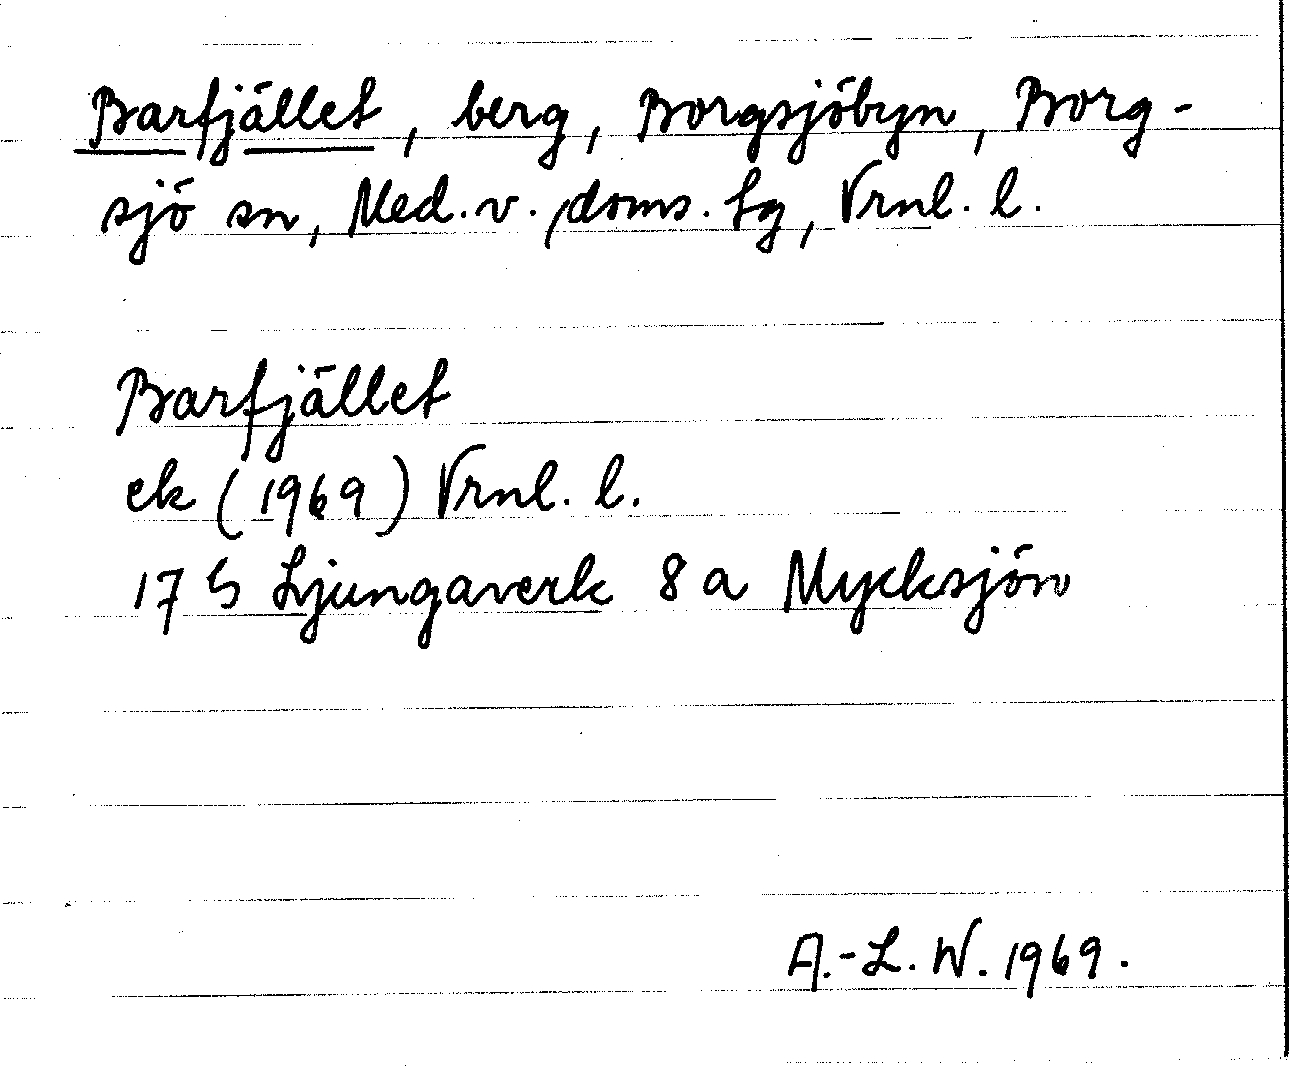 Barfjället, berg, Borgsjöbyn, Borg-
sjö sn, Med. v. doms. tg, Vrnl. l.
Barfjället
ek (1969) Vrnl. l.
17 G Ljungaverk 8 a Mycksjön
A.-L. W. 1969.